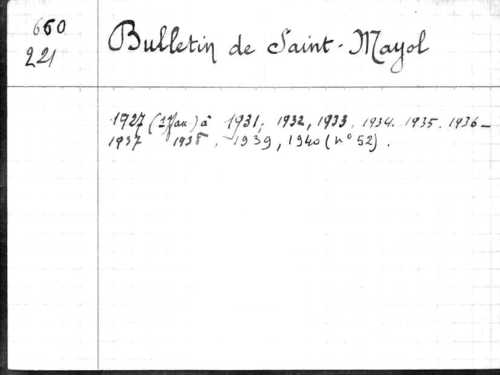 660
221
Bulletin de Saint-Mayol
1927 ( ) à 1931, 1932, 1933. 1934. 1935. 1936-
1937 1938. 1939, 1940 (n° 52).